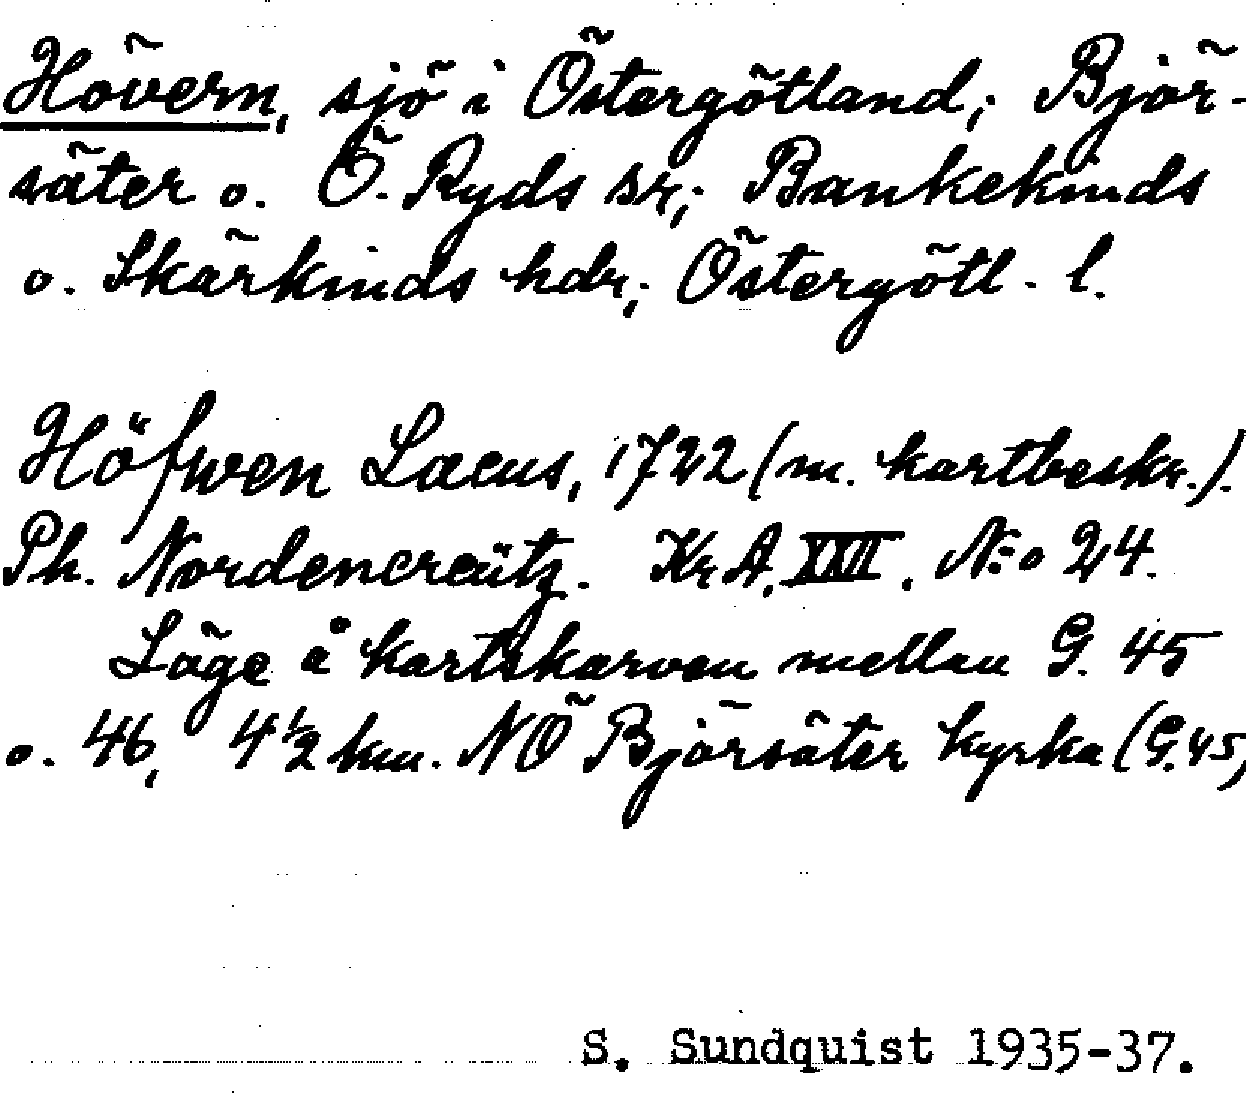 Hövern, sjö i Östergötland; Björ-
säter o. Ö. Ryds sr; Bankekinds
o. Skärkinds hdr; Östergötl. l.
Höfwen Lacus, 1722 (m. kartbeskr.).
Ph. Nordencreütz. Kr.A. XXII. N:o 24.
Läge å kartskarven mellan G. 45
o. 46, 4 1/2 km. NÖ Björsäter kyrka (G.45)
S. Sundquist 1935-37.